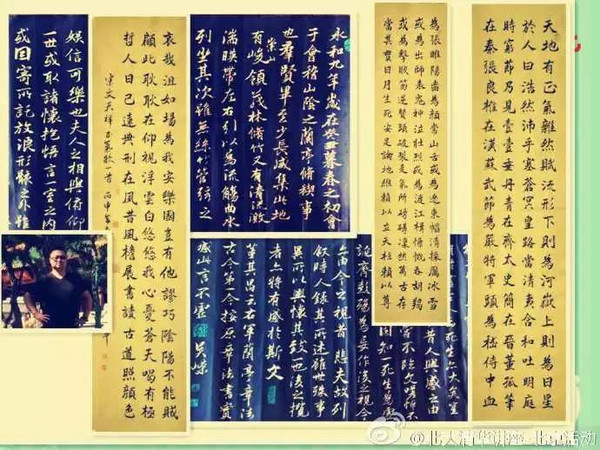 天地有正氣雜然賦流形下則為河嶽上則為日星
於人曰浩然沛乎塞蒼冥皇路當清夷含和吐明庭
時窮節乃見壹壹垂丹青在齊太史簡在晉董狐筆
在秦張良椎在漢蘇武節為嚴將軍頭為嵇侍中血
為張睢陽齒為顏常山舌或為遼東帽清操厲冰雪
或為出師表鬼神泣壯烈或為渡江楫慷慨吞胡羯
或為擊賊笏逆豎頭破裂是氣所磅礴凜然萬古存
當其貫日月生死安足論地維賴以立天柱賴以尊
永和九年歲在癸丑暮春之初會
于會稽山陰之蘭亭脩稧事
也群賢畢至少長咸集此地
有崇山峻領茂林脩竹又有清流激
湍暎帶左右引以為流觴曲水
列坐其次雖無絲竹管弦之
哀哉沮如場為我安樂國豈有他謬巧陰陽不能賊
顧此耿耿在仰視浮雲白悠悠我心憂蒼天曷有極
哲人日已遠典刑在夙昔風檐展書讀古道照顏色
宋文天祥正氣歌一首 丙申
娛信可樂也夫人之相與俯仰
一世或取諸懷抱悟言一室之內
或因寄所託放浪形骸之外雖
由今之視昔悲夫故列
敘時人錄其所述雖世殊事
異所以興懷其致一也後之攬
者亦將有感於斯文
右軍蘭亭章法
古今第一今按原章法書